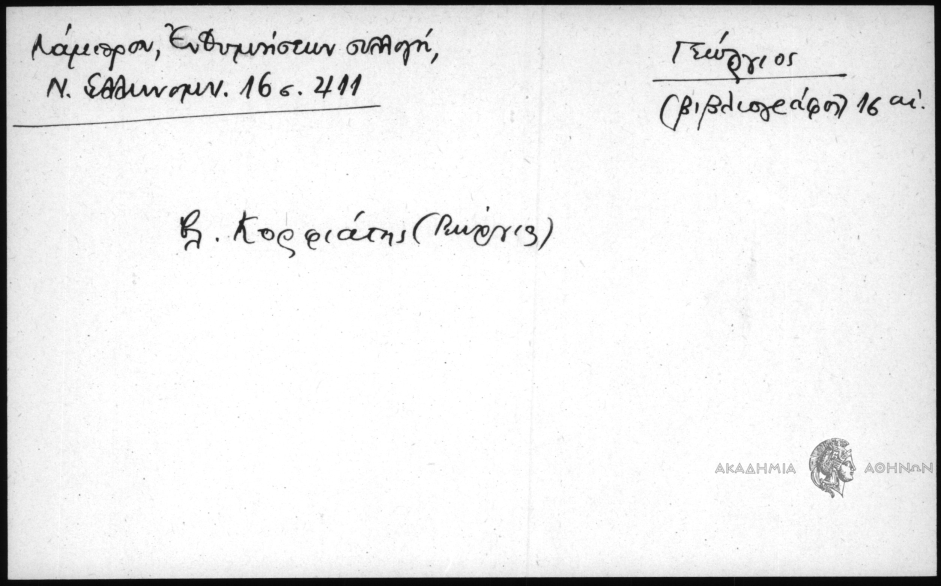 Λάμπρου, Ἐνθυμήσεων συλλογή,
Ν. Ἑλληνομν. 16 σ. 411
Γεώργιος
(βιβλιογράφος) 16 αἰ.
Βλ. Κορφιάτης (Γεώργιος)
ΑΚΑΔΗΜΙΑ ΑΘΗΝΩΝ